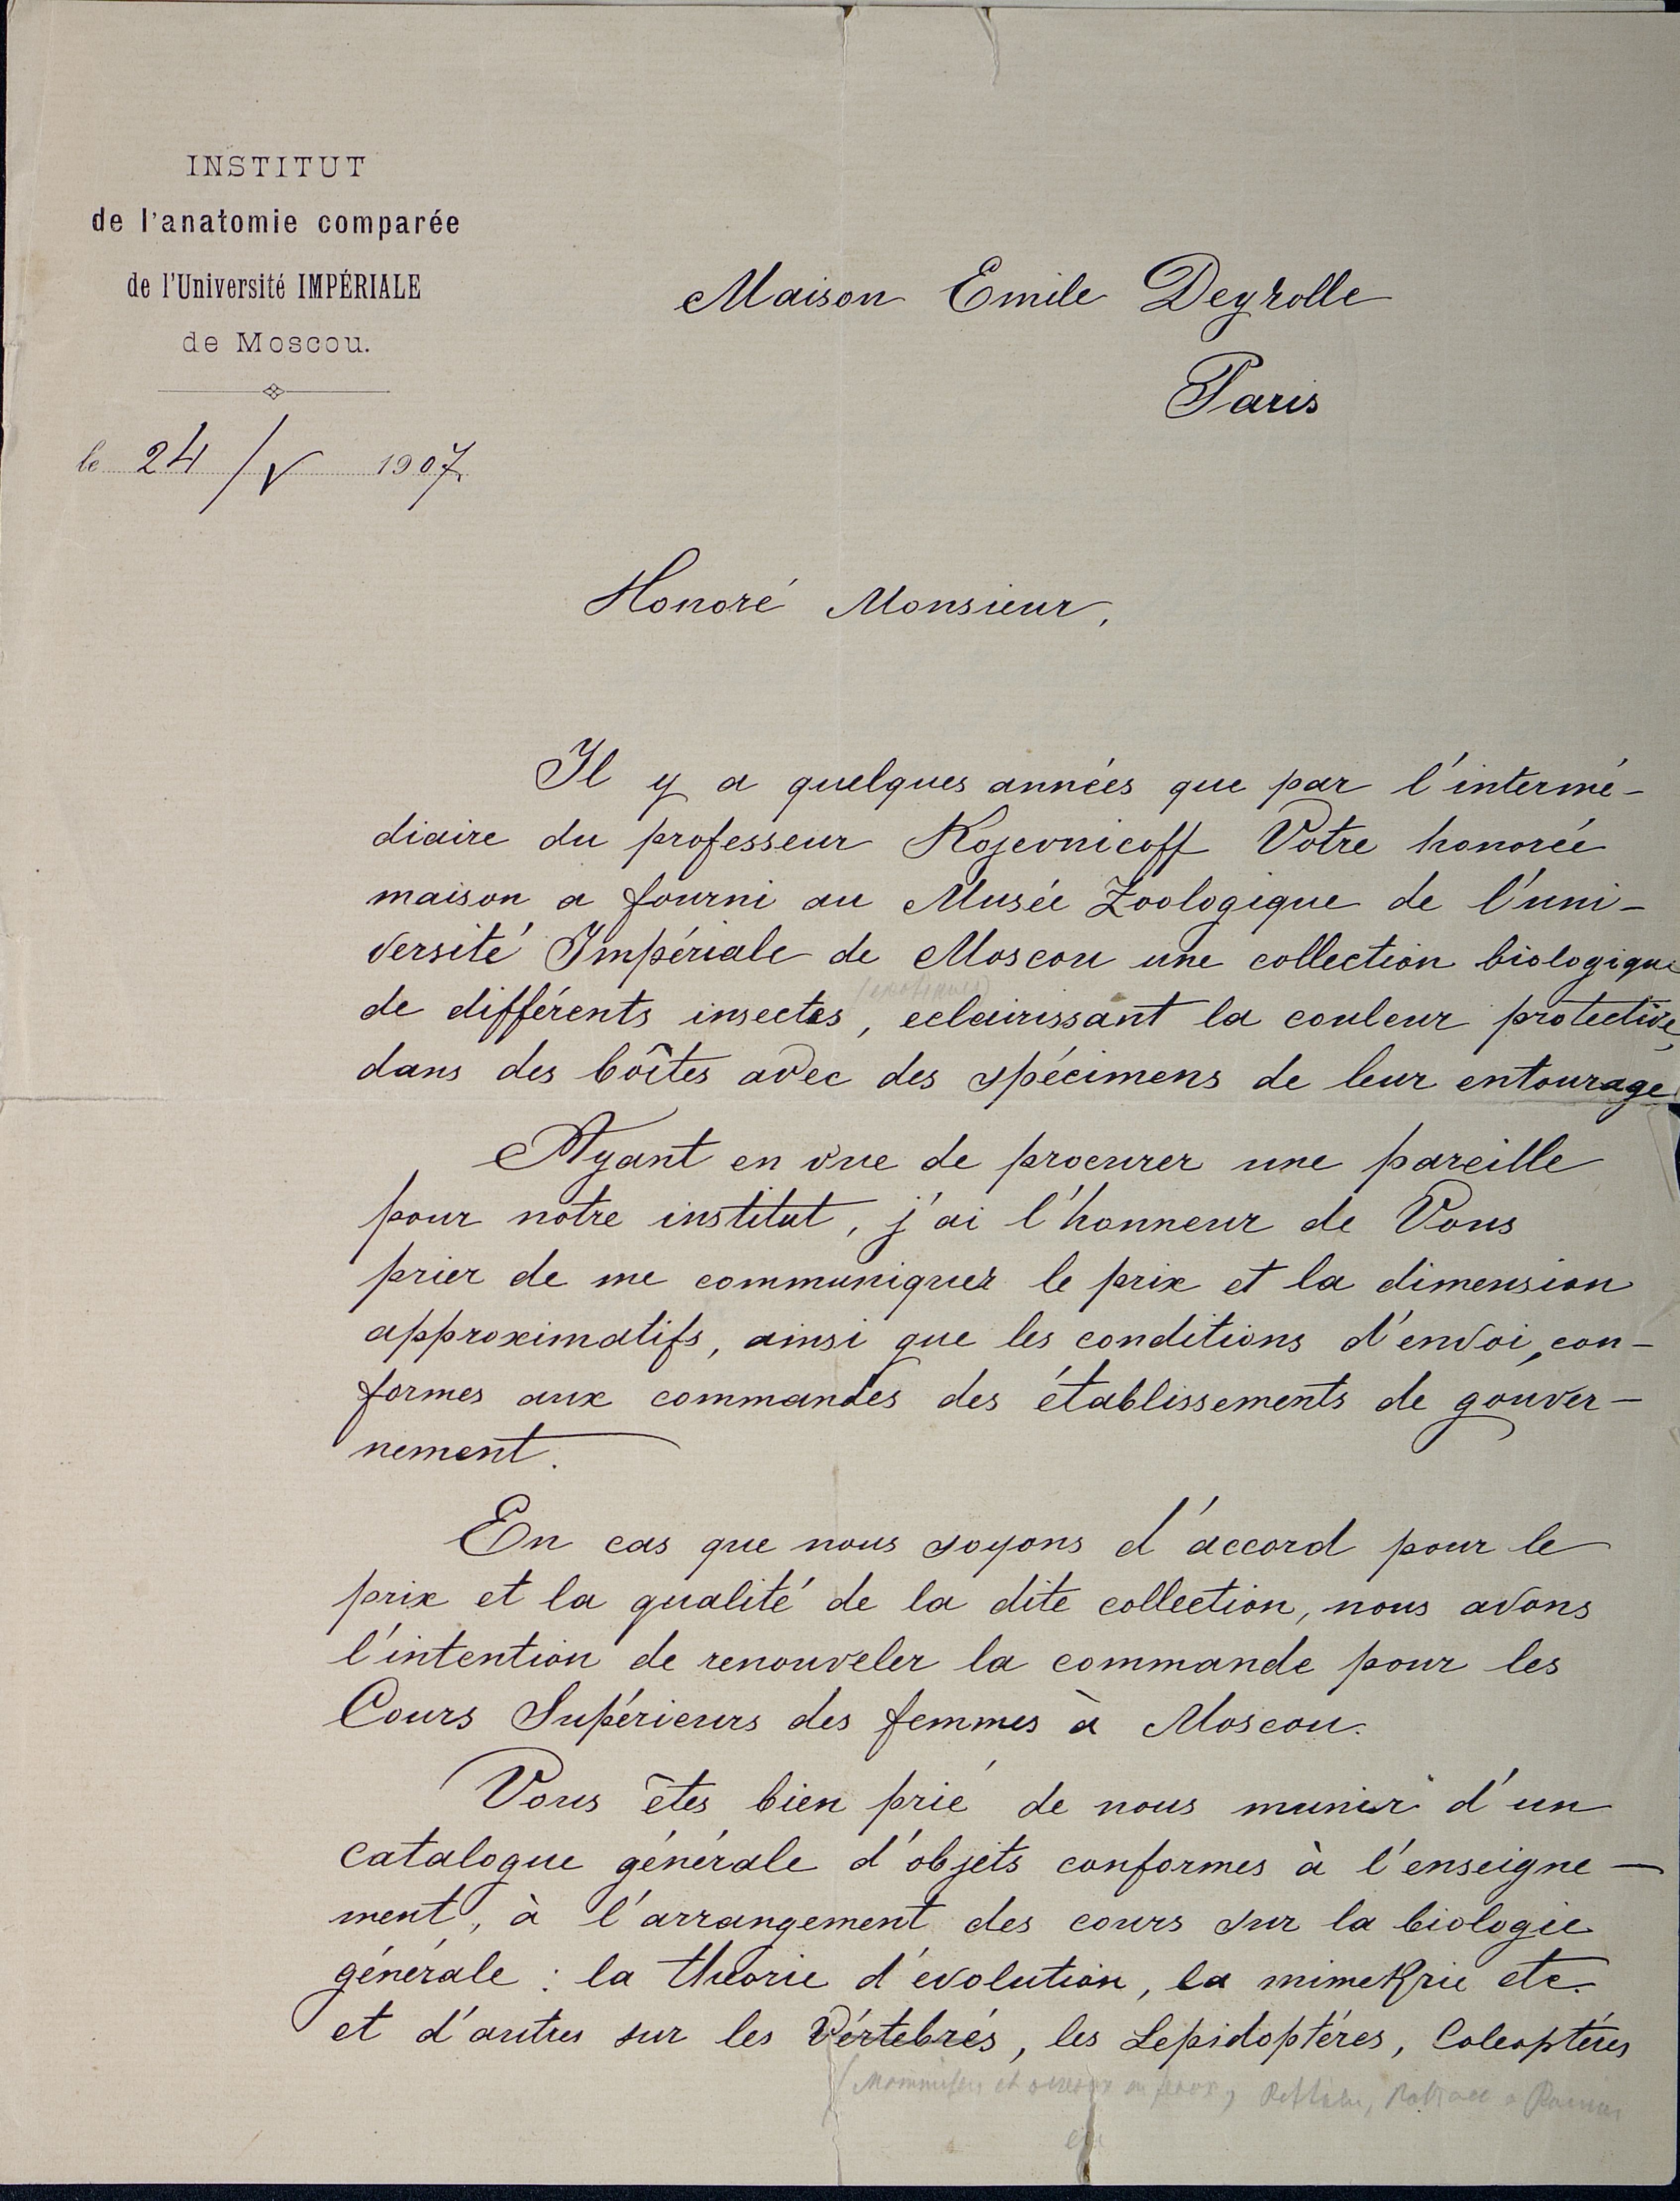 INSTITUT
de l'anatomie comparée
de l'Université IMPÉRIALE
de Moscou.
le 24/V 1907.
Maison Emile Deyrolle
Paris
Honoré Monsieur,
Il y a quelques années que par l'intermé-
diaire du professeur Kojevnicoff Votre honorée
maison a fourni au Musée Zoologique de l'uni-
versité Impériale de Moscou une collection biologique
(exotiques)
de différents insectes, eclairissant la couleur protective,
dans des boîtes avec des spécimens de leur entourage
Ayant en vue de procurer une pareille
pour notre institut, j'ai l'honneur de Vous
prier de me communiquer le prix et la dimension
approximatifs, ainsi que les conditions d'envoi, con-
formes aux commandes des établissements de gouver-
nement.
En cas que nous soyons d'accord pour le
prix et la qualité de la dite collection, nous avons
l'intention de renouveler la commande pour les
Cours Supérieurs des femmes à Moscou.
Vous êtes bien prié de nous munir d'un
catalogue générale d'objets conformes à l'enseigne-
ment, à l'arrangement des cours sur la biologie
générale : la théorie d'évolution, la mimekrie etc.
et d'autres sur les Vértebrés, les Lepidoptéres, Coleoptéres
(Mammifères et oiseaux en peaux,